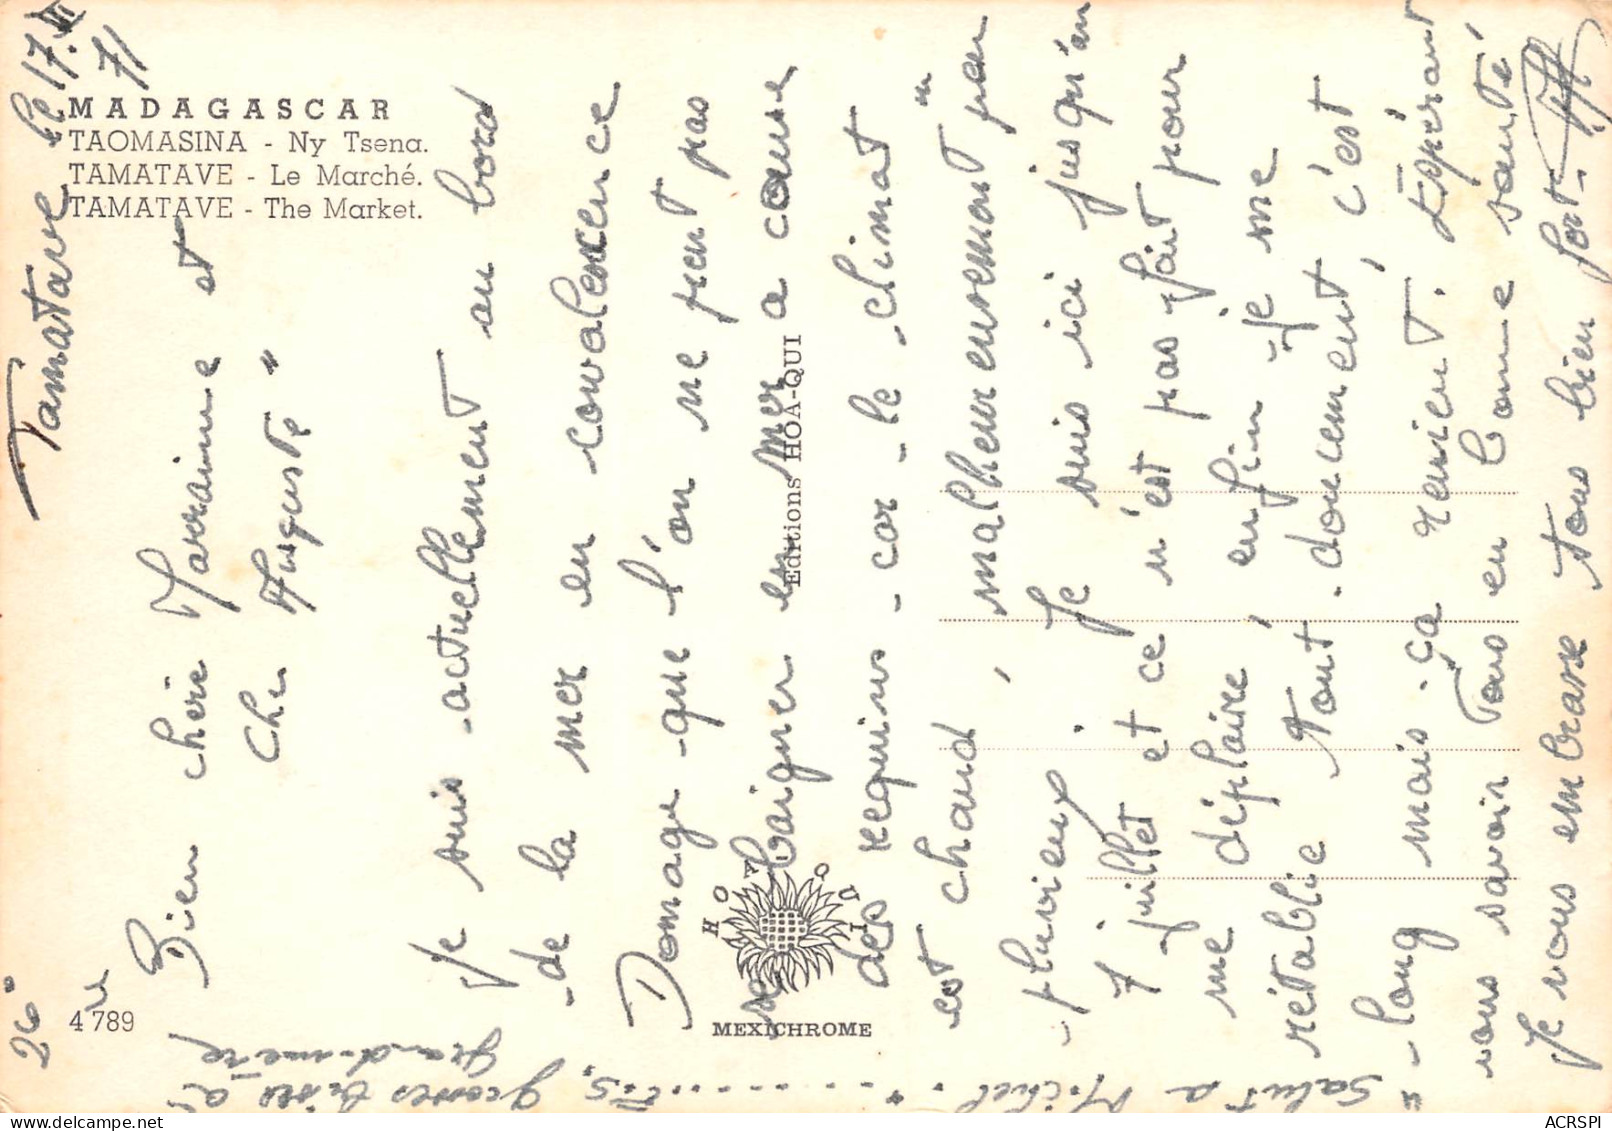 MADAGASCAR
TAOMASINA - Ny Tsena.
TAMATAVE - Le Marché.
TAMATAVE - The Market.
4 789
Editions HOA-QUI
HOA QUI
MEXICHROME
Tamatave le 17.VI
71
26°
Bien chère Marraine et
Cher Auguste "
Je suis actuellement au bord
de la mer en convalescence
Domage que l'on ne peut pas
se baigner en mer a cause
des requins - car - le climat "
est chaud, malheureusement peu
pluvieux. Je suis ici jusqu'au
7 juillet et ce n'est pas fait pour
me déplaire, enfin je me
rétablie tout doucement, c'est
long mais ça revient. Espérant
vous savoir tous en bonne santé
Je vous embrasse tous bien fort -
" Salut a Michel.
grosses bises a
grand-mère,
ACRSPI